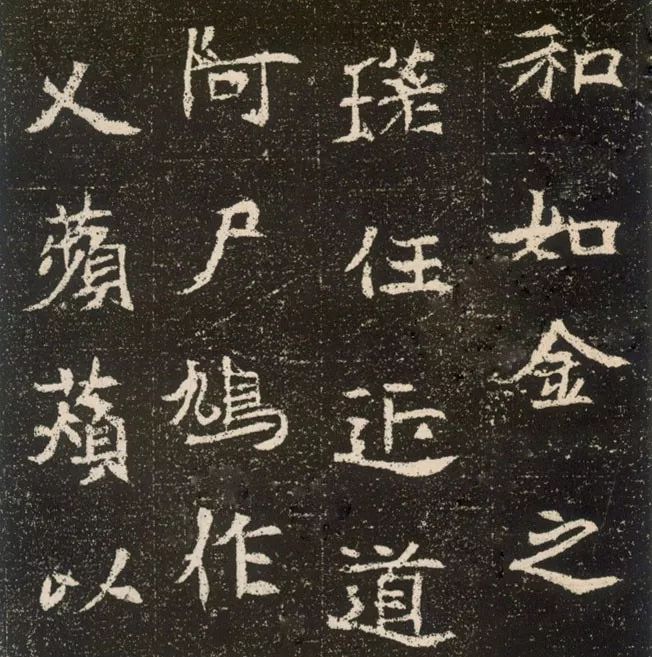 和如金之
任近道
阿尸鳩作
乂蘋薠以